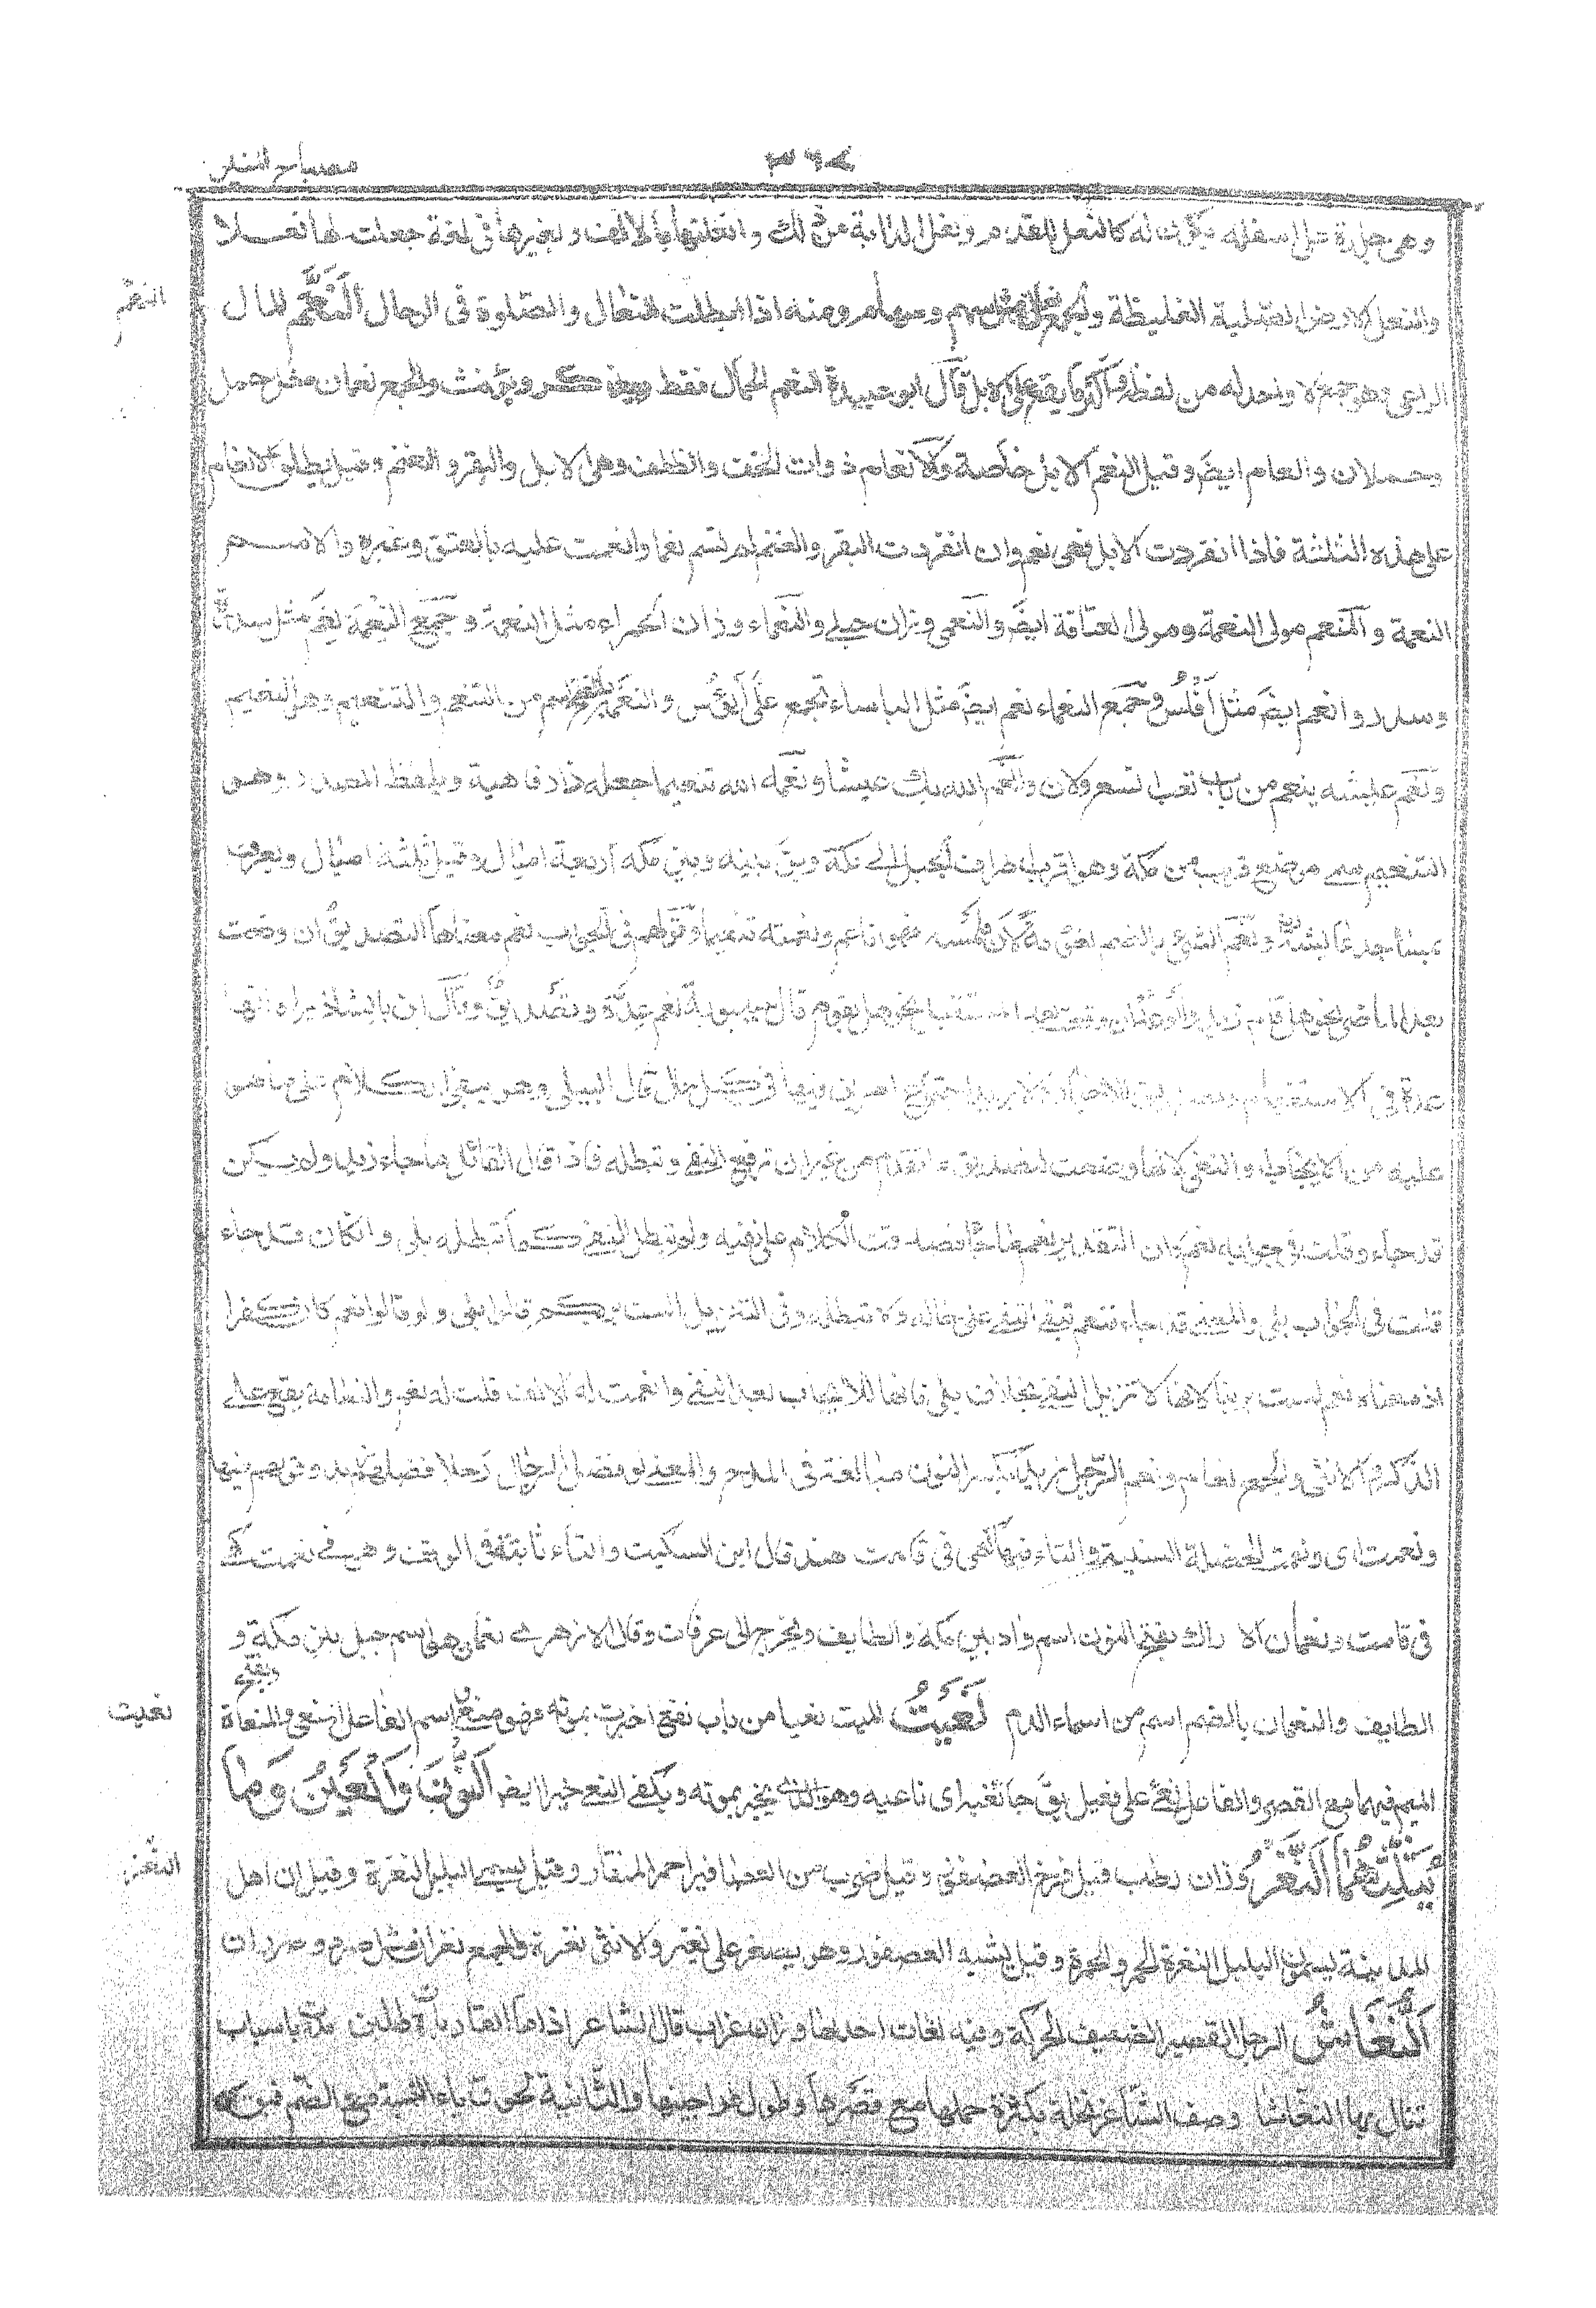 ٣٦٧
مصباح المنير
وهى جلدة على اسفله تكون له كالنعل للقدم ونعل الدابة من ذلك وانعلتها بالالف وبغيرها فى لغة جعلت لها نعلا
والنعل الارض الصلبة الغليظة والجمع نعال مثل سهم وسهام ومنه اذا ابتلت النعال فالصلوة فى الرحال النَّعَمُ المال
النعم
الراعى وهو جمع لا واحد له من لفظه واكثر ما يقع على الابل قال ابو عبيدة النعم الجمال فقط ويذكر ويؤنث والجمع نعمان مثل حمل
وحملان وانعام ايضً وقيل النعم الابل خاصة والانعام ذوات الخف والظلف وهى الابل والبقر والغنم وقيل يطلق الانعام
على هذه الثلثة فاذا انفردت الابل فهى نعم وان انفردت البقر والغنم لم تسم نعما وانعمت عليه بالعتق وغيره والاسم
النعمة والمنعم مولى النعمة ومولى العتاقة ايضً والنعمى وزان حبلى والنعماء وزان الحمراء مثل النعمة وجمع النعمة نعم مثل سدرة
وسدر وانعم ايضً مثل افلس وجمع النعماء انعم ايضً مثل الباساء تجمع على ابؤس والنعمة بالفتح اسم من التنعم والتنعيم وهو النعيم
ونعم عيشه ينعم من باب تعب اتسع ولان وانعم الله بك عينا ونعمه الله تنعيما جعله ذا رفاهية وبلفظ المصدر وهو
التنعيم سمى موضع قريب من مكة وهو اقرب اطراف الحل الى مكة ويقً بينه وبين مكه اربعة اميال وقيل ثلثة اميال ويعرف
بمساجد عايشة ونعم الشئ بالضم نعومة لان ملمسه فهو ناعم ونعمته تنعيما وقولهم فى الجواب نعم معناها التصديق ان وقعت
بعد الماضى نحو هل قام زيد والوعد ان وقعت بعد المستقبل نحو هل يقوم قال سيبويه نعم عدة وتصديق وقال ابن بابشاذ يريد انها
عدة فى الاستفهام وتصديق للاخبار ولا يريد اجتماع الامرين فيها فى كل حال قال النيلى وهى تبقى الكلام على ما هو
عليه من الايجاب والنفى لانها وضعت لتصديق ما تقدم من غير ان ترفع النفى وتبطله فاذا قال القائل ما جاء زيد ولم يكن
قد جاء وقلت فى جوابه نعم كان التقدير نعم ما جاء فصدقت الكلام على نفيه ولم تبطل النفى كما تبطله بلى وان كان قد جاء
قلت فى الجواب بلى والمعنى قد جاء فنعم تبقى النفى على حاله ولا تبطله وفى التنزيل الست بربكم قالوا بلى ولو قالوا نعم كان كفرا
اذ معناه نعم لست بربنا لانها لا تزيل النفى بخلاف بلى فانها للايجاب بعد النفى وانعمت له بالالف قلت له نعم والنعامة يقع على
الذكر والانثى والجمع نعام ونعم الرجل زيد بكسر النون مبالغة فى المدح والمعنى لو فضل الرجال رجلا رجلا فضلهم زيد وقولهم فيها
ونعمت اى ونعمت الخصلة السنة والتاء فيها كهى فى قامت هند قال ابن السكيت والتاء ثابتة فى الوقف وهى فى نعمت كما
فى قامت ونعمان الاراك بفتح النون اسم واد بين مكة والطايف ويخرج الى عرفات وقال الازهرى نعمان اسم جبل بين مكة و
الطايف والنعمان بالضم اسم من اسماء الدم نَعَيْتُ الميت نعيا من باب نفع اخبرت بموته فهو منعى واسم الفاعل الناعى والمنعاة وبفتح
نعيت
الميم فيهما مع القصر والفاعل نعى على فعيل يقً جاء نعيه اى ناعيه وهو الذى يخبر بموته ويكون النعى خبرا ايضً اَلنُّونُ وَالْغَيْنُ وَمَا
يَثْلِثُهُمَا اَلنُّغَرُ وزان رطب قيل فرخ العصفور وقيل ضرب من العصافير احمر المنقار وقيل يسمى البلبل النغرة وقيل ان اهل
النغر
المدينة يسمون البلبل النغرة والحمرة وقيل يشبه العصفور وهو يصغر على نغير والانثى نغرة والجمع نغران مثل صرد وصردان
اَلنُّغَاشُ الرجل القصير الضعيف الحركة وفيه لغات احدها وزان غراب قال الشاعر اذا ما القارياة طلبن مدت باسباب
تنال بها النغاشا وصف الشاعر نخلة بكثرة حملها مع قصرها وطول عراجينها والثانية لحوق ياء النسبة مع الضم فيهن